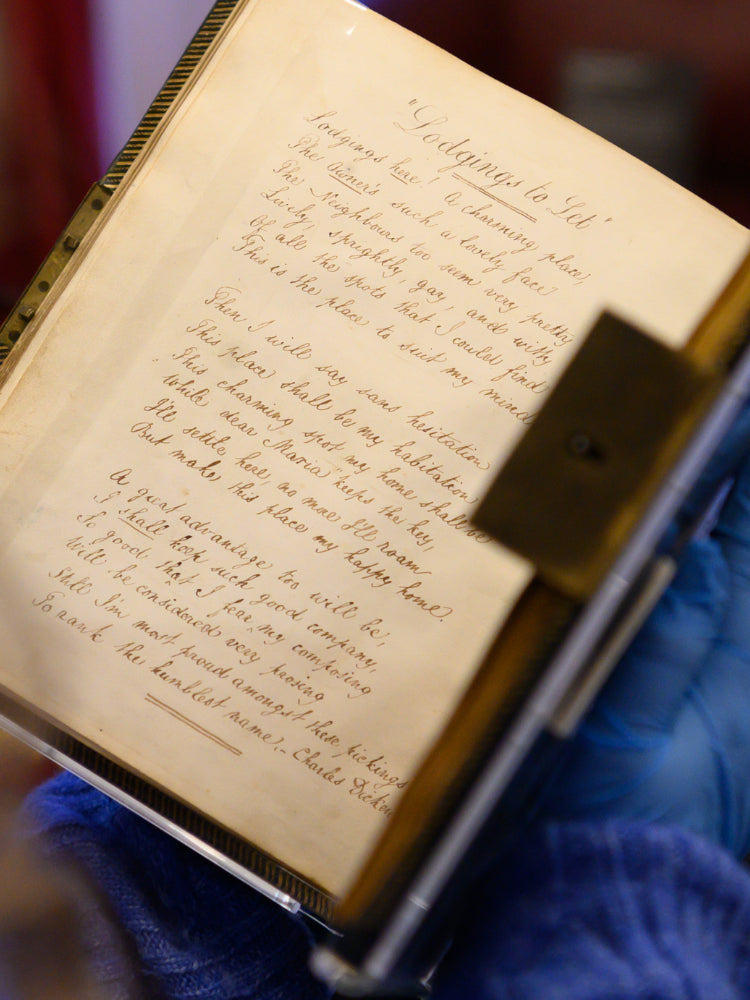 "Lodgings to Let"
Lodgings here! A charming place,
The Owner's such a lovely face
The Neighbours too seem very pretty
Lively, sprightly, gay, and witty
Of all the spots that I could find
This is the place to suit my mind
Then I will say sans hesitation
This place shall be my habitation
This charming spot my home shall be
While dear Maria keeps the key,
I'll settle here, no more I'll roam
But make this place my happy home.
A great advantage too will be,
I shall keep such good company,
So good, that I fear my composing
Will be considered very prosing
Still I'm most proud amongst these pickings
To rank the humblest name. – Charles Dicken